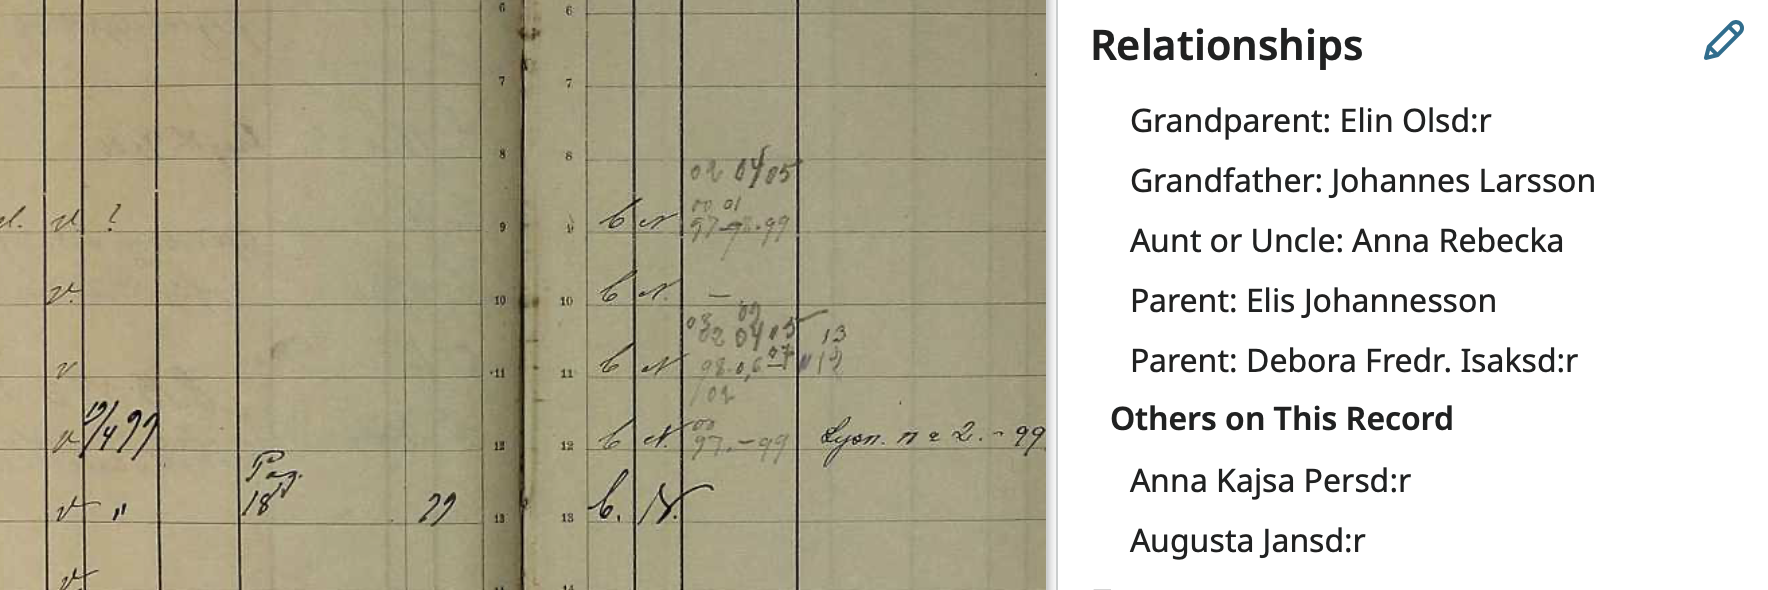 6 6
7 7
8 8
02 04 05
00 01
v ? 9 9 b N 97-98-99
v. 10 10 b N. –
02 04
v 11 11 b N 13
12
/02
19/4 99
00
v 12 12 b N. 97.-99 Lysn. n = 2. - 99
Pag.
18
v " 29 13 13 b. N.
v
Relationships
Grandparent: Elin Olsd:r
Grandfather: Johannes Larsson
Aunt or Uncle: Anna Rebecka
Parent: Elis Johannesson
Parent: Debora Fredr. Isaksd:r
Others on This Record
Anna Kajsa Persd:r
Augusta Jansd:r